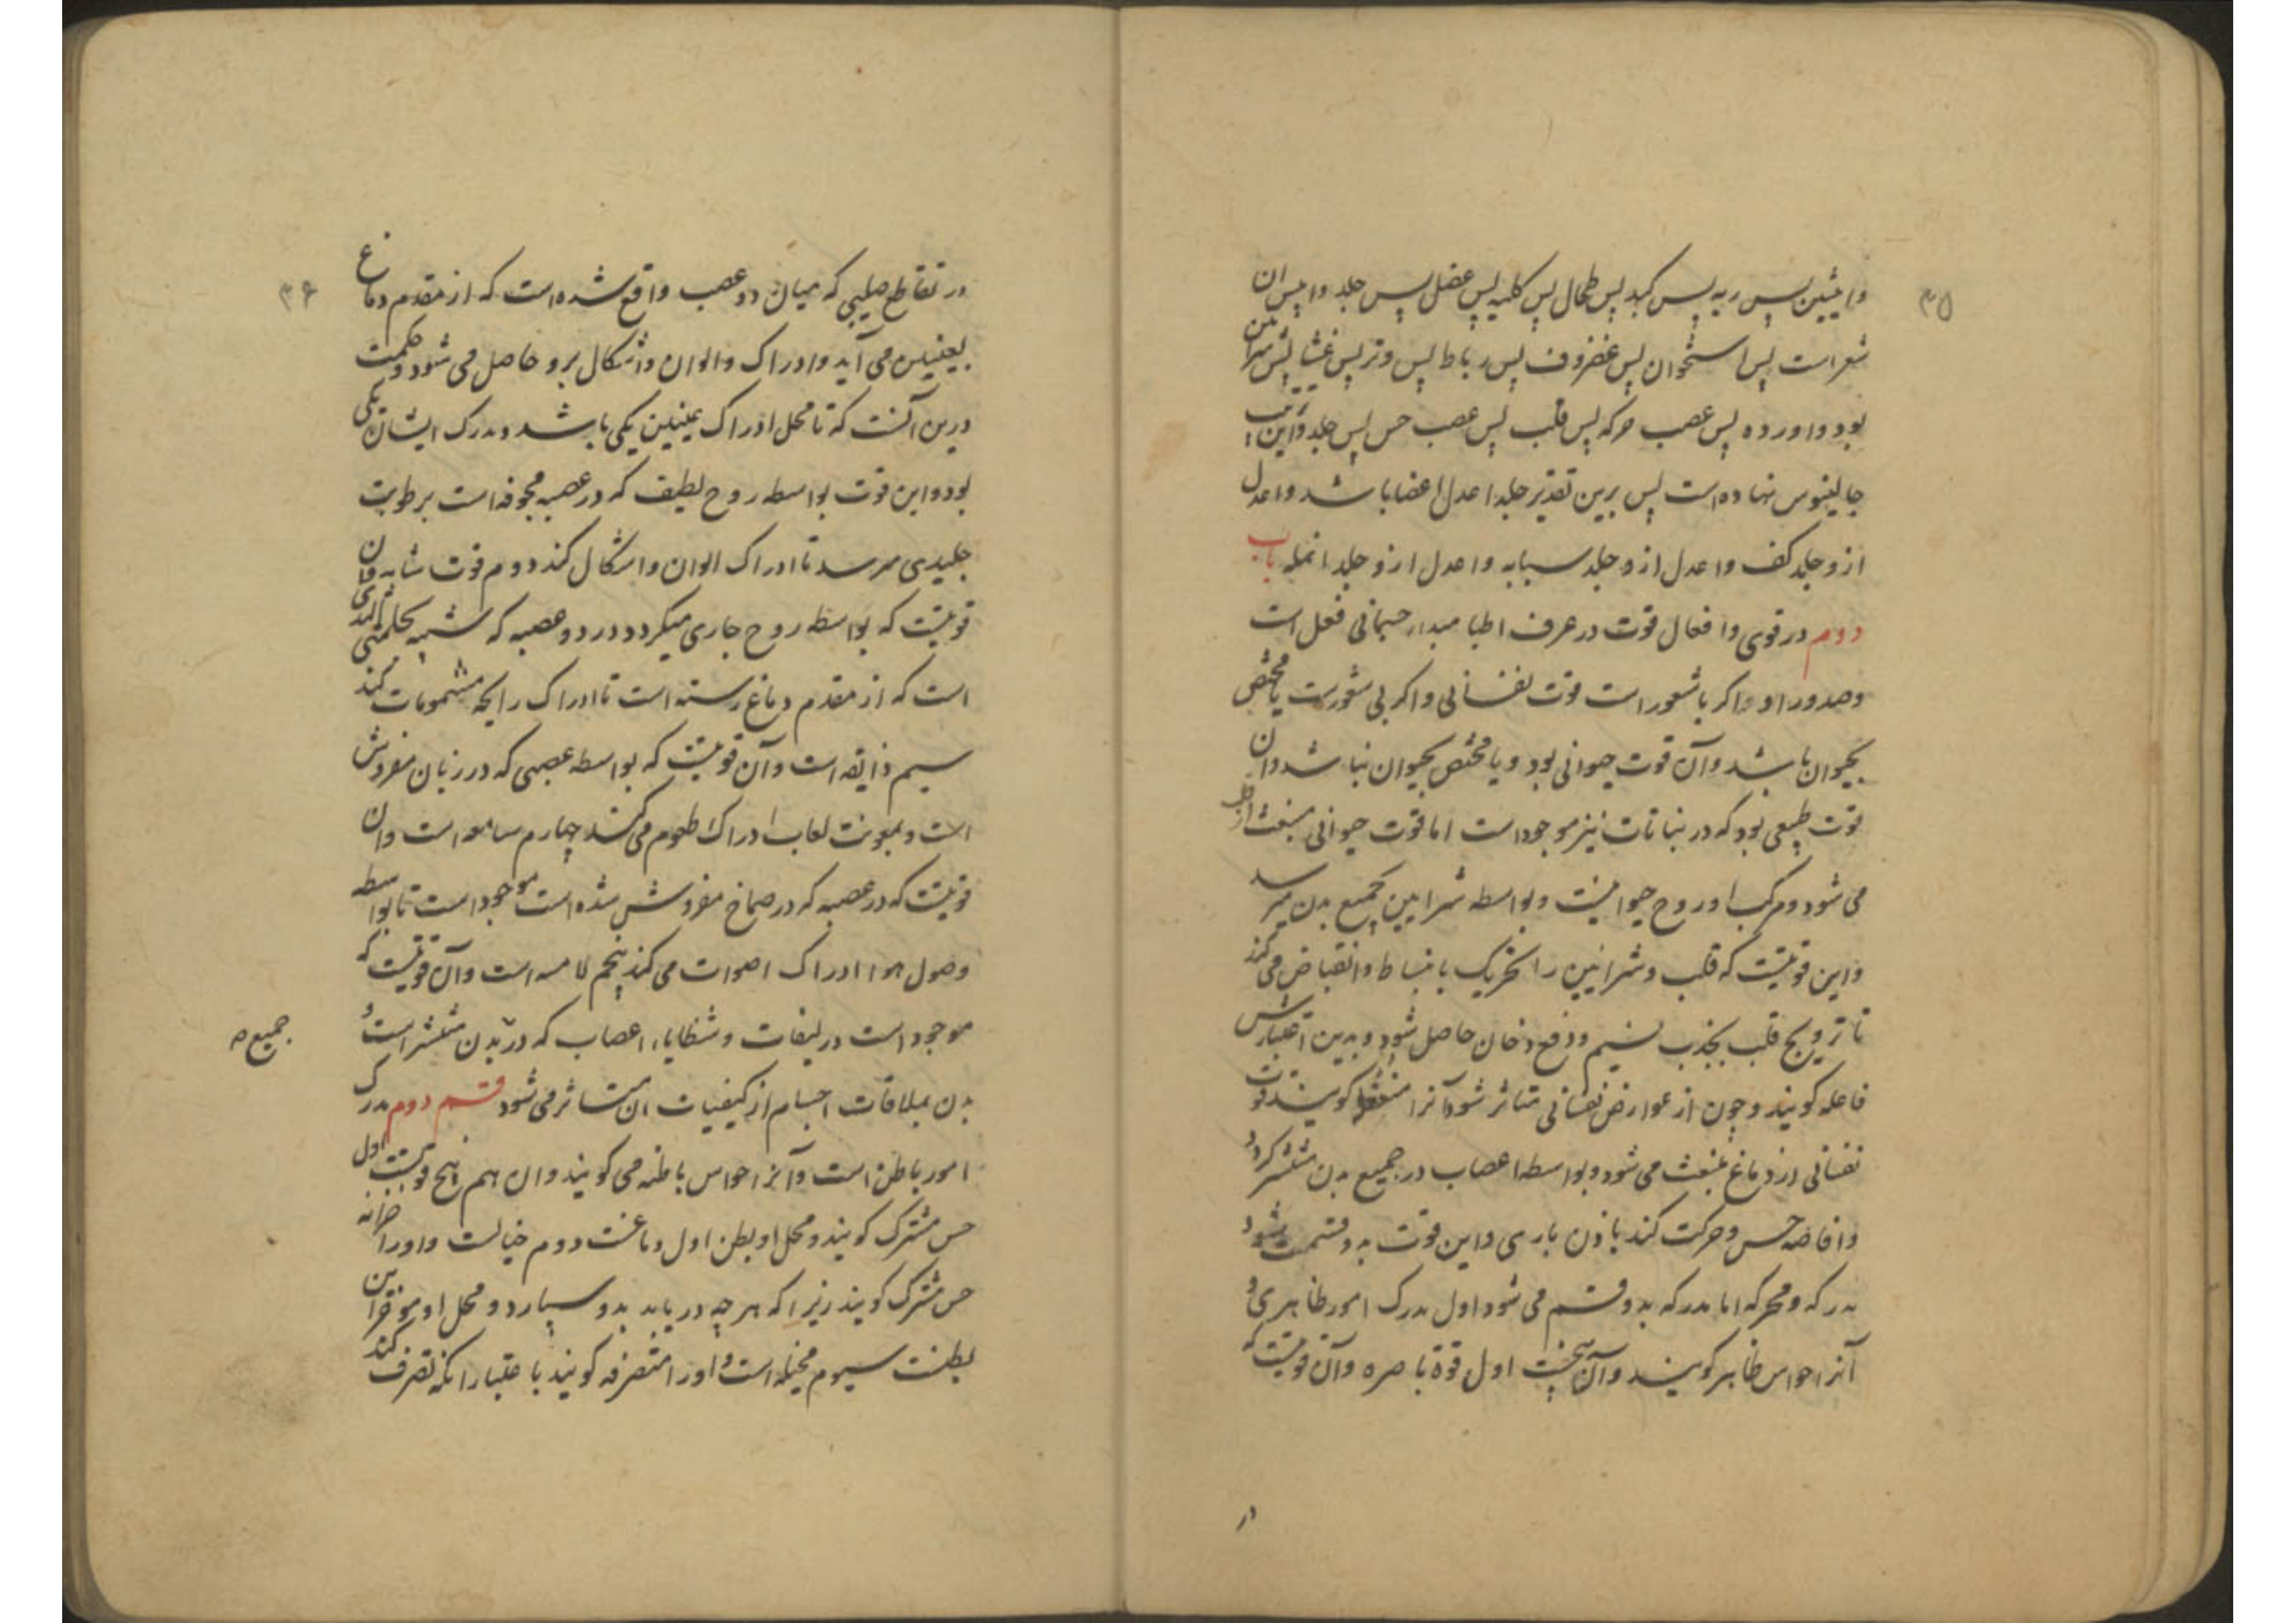 ۳۵
و انثیین پس ریه پس کبد پس طحال پس کلیه پس عضل پس جلد و ایبس ان
شعر است پس استخوان پس غضروف پس رباط پس وتر پس غشا پس شرائین
بود و اورده پس عصب حرکه پس قلب پس عصب حس پس جلد و این ترتیب
جالینوس نهاده است پس برین تقدیر جلد اعدل اعضا باشد و اعدل
ازو جلد کف و اعدل ازو جلد سبابه و اعدل ازو جلد انمله باب
دوم در قوی و افعال قوت در عرف اطبا مبدا جسمانی فعل است
و صدور او اگر با شعور است قوت نفسانی و اگر بی شعورست یا مختص
بحیوان باشد و آن قوت حیوانی بود و یا مختص بحیوان نباشد و ان
قوت طبیعی بود که در نباتات نیز موجود است اما قوت حیوانی منبعث از قلب
می شود و مرکب او روح حیوانیست و بواسطه شرایین بجمیع بدن میرسد
و این قوتیست که قلب و شرائین را تحریک بانبساط و انقباض می کند
تا ترویح قلب بجذب نسیم و دفع دخان حاصل شود و بدین اعتبارش
فاعله کویند و چون از عوارض نفسانی متاثر شود آنرا منفعله کویند و قوت
نفسانی از دماغ منبعث می شود و بواسطه اعصاب در جمیع بدن منتشر کردد
و افاضه حس و حرکت کند باذن باری و این قوت به دو قسمت شود
مدرکه و محرکه اما مدرکه بدو قسم می شود اول مدرک امور ظاهری و
آنرا حواس ظاهر کویند و آن پنجست اول قوة باصره و آن قوتیست که
در
۳۶
در تقاطع صلیبی که میان دو عصب واقع شده است که از مقدم دماغ
بعینین می آید و ادراک و الوان و اشکال برو حاصل می شود و حکمت
درین آنست که تا محل ادراک عینین یکی باشد و مدرک ایشان یکی
بود و این قوت بواسطه روح لطیف که در عصبه مجوفه است برطوبت
جلیدی میرسد تا ادراک الوان و اشکال کند دوم قوت شامه و ان
قوتیست که بواسطه روح جاری میکردد در دو عصبه که شبیه بحلمتی الثدی
است که از مقدم دماغ رسته است تا ادراک رایحه مشمومات کند
سیم ذایقه است و آن قوتیست که بواسطه عصبی که در زبان مفروش
است و بمعونت لعاب ادراک طعوم می کند چهارم سامعه است و ان
قوتیست که در عصبه که در صماخ مفروش شده است موجود است تا بواسطه
وصول هوا ادراک اصوات می کند پنجم لامسه است و آن قوتیست که
موجود است در لیفات و شظایاء اعصاب که در بدن منتشر است و
جمیع
بدن بملاقات اجسام از کیفیات ان متاثر می شود قسم دوم مدرک
امور باطن است و آنرا حواس باطنه می کویند و ان هم پنج قوتست اول
حس مشترک کویند و محل او بطن اول دماغست دوم خیالست و او را خزانه
حس مشترک کویند زیرا که هر چه دریابد بدو سپارد و محل او موخر این
بطنست سیوم مخیله است و او را متصرفه کویند باعتبار انکه تصرف کند